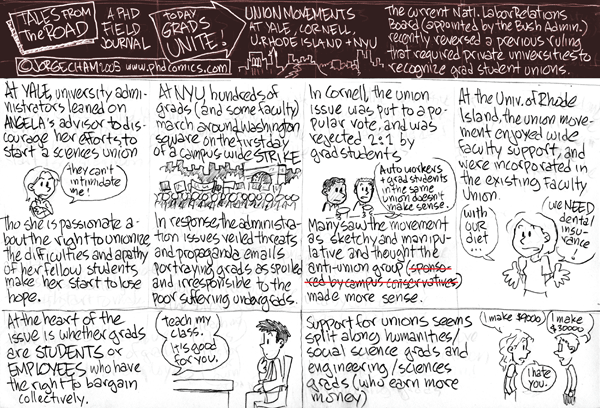 TALES FROM
the ROAD
A PHD
FIELD
JOURNAL
TODAY
GRADS
UNITE!
UNION MOVEMENTS
AT YALE, CORNELL,
U.RHODE ISLAND + NYU
The current Natl. Labor Relations
Board (appointed by the Bush Admin.)
recently reversed a previous ruling
that required private universities to
recognize grad student unions.
© JORGE CHAM 2005 www.phdcomics.com
At YALE, university admi-
nistrators leaned on
ANGELA's advisor to dis-
courage her efforts to
start a sciences union
they can't
intimidate
me!
Tho she is passionate a-
bout the right to unionize,
the difficulties and apathy
of her fellow students
make her start to lose
hope.
At NYU hundreds of
grads (and some faculty)
march around Washington
square on the first day
of a campus wide STRIKE
In response, the administra-
tion issues veiled threats
and propaganda emails
portraying grads as spoiled
and irresponsible to the
poor suffering undergrads.
In Cornell, the union
issue was put to a po-
pular vote, and was
rejected 2:1 by
grad students
Auto workers
+ grad students
in the same
union doesn't
make sense.
Many saw the movement
as sketchy and manipu-
lative and thought the
anti-union group (sponso-
red by campus conservatives)
made more sense.
At the Univ. of Rhode
Island, the union move-
ment enjoyed wide
faculty support, and
were incorporated in
the existing Faculty
Union.
with
OUR
diet...
we NEED
dental
insu-
rance
!
At the heart of the
issue is whether grads
are STUDENTS or
EMPLOYEES who have
the right to bargain
collectively.
teach my
class.
It is good
for you.
Support for unions seems
split along humanities/
social science grads and
engineering/sciences
grads (who earn more
money)
I make $9000
I make
$30000
I hate
you.